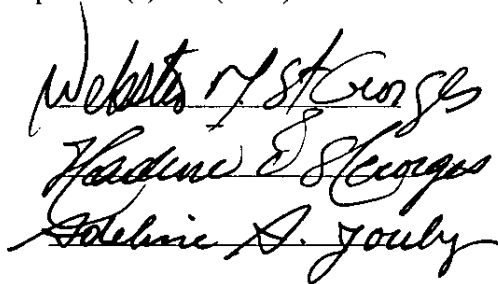 Webster M St Georges
Nadine E St Georges
Adeline S. Jouby